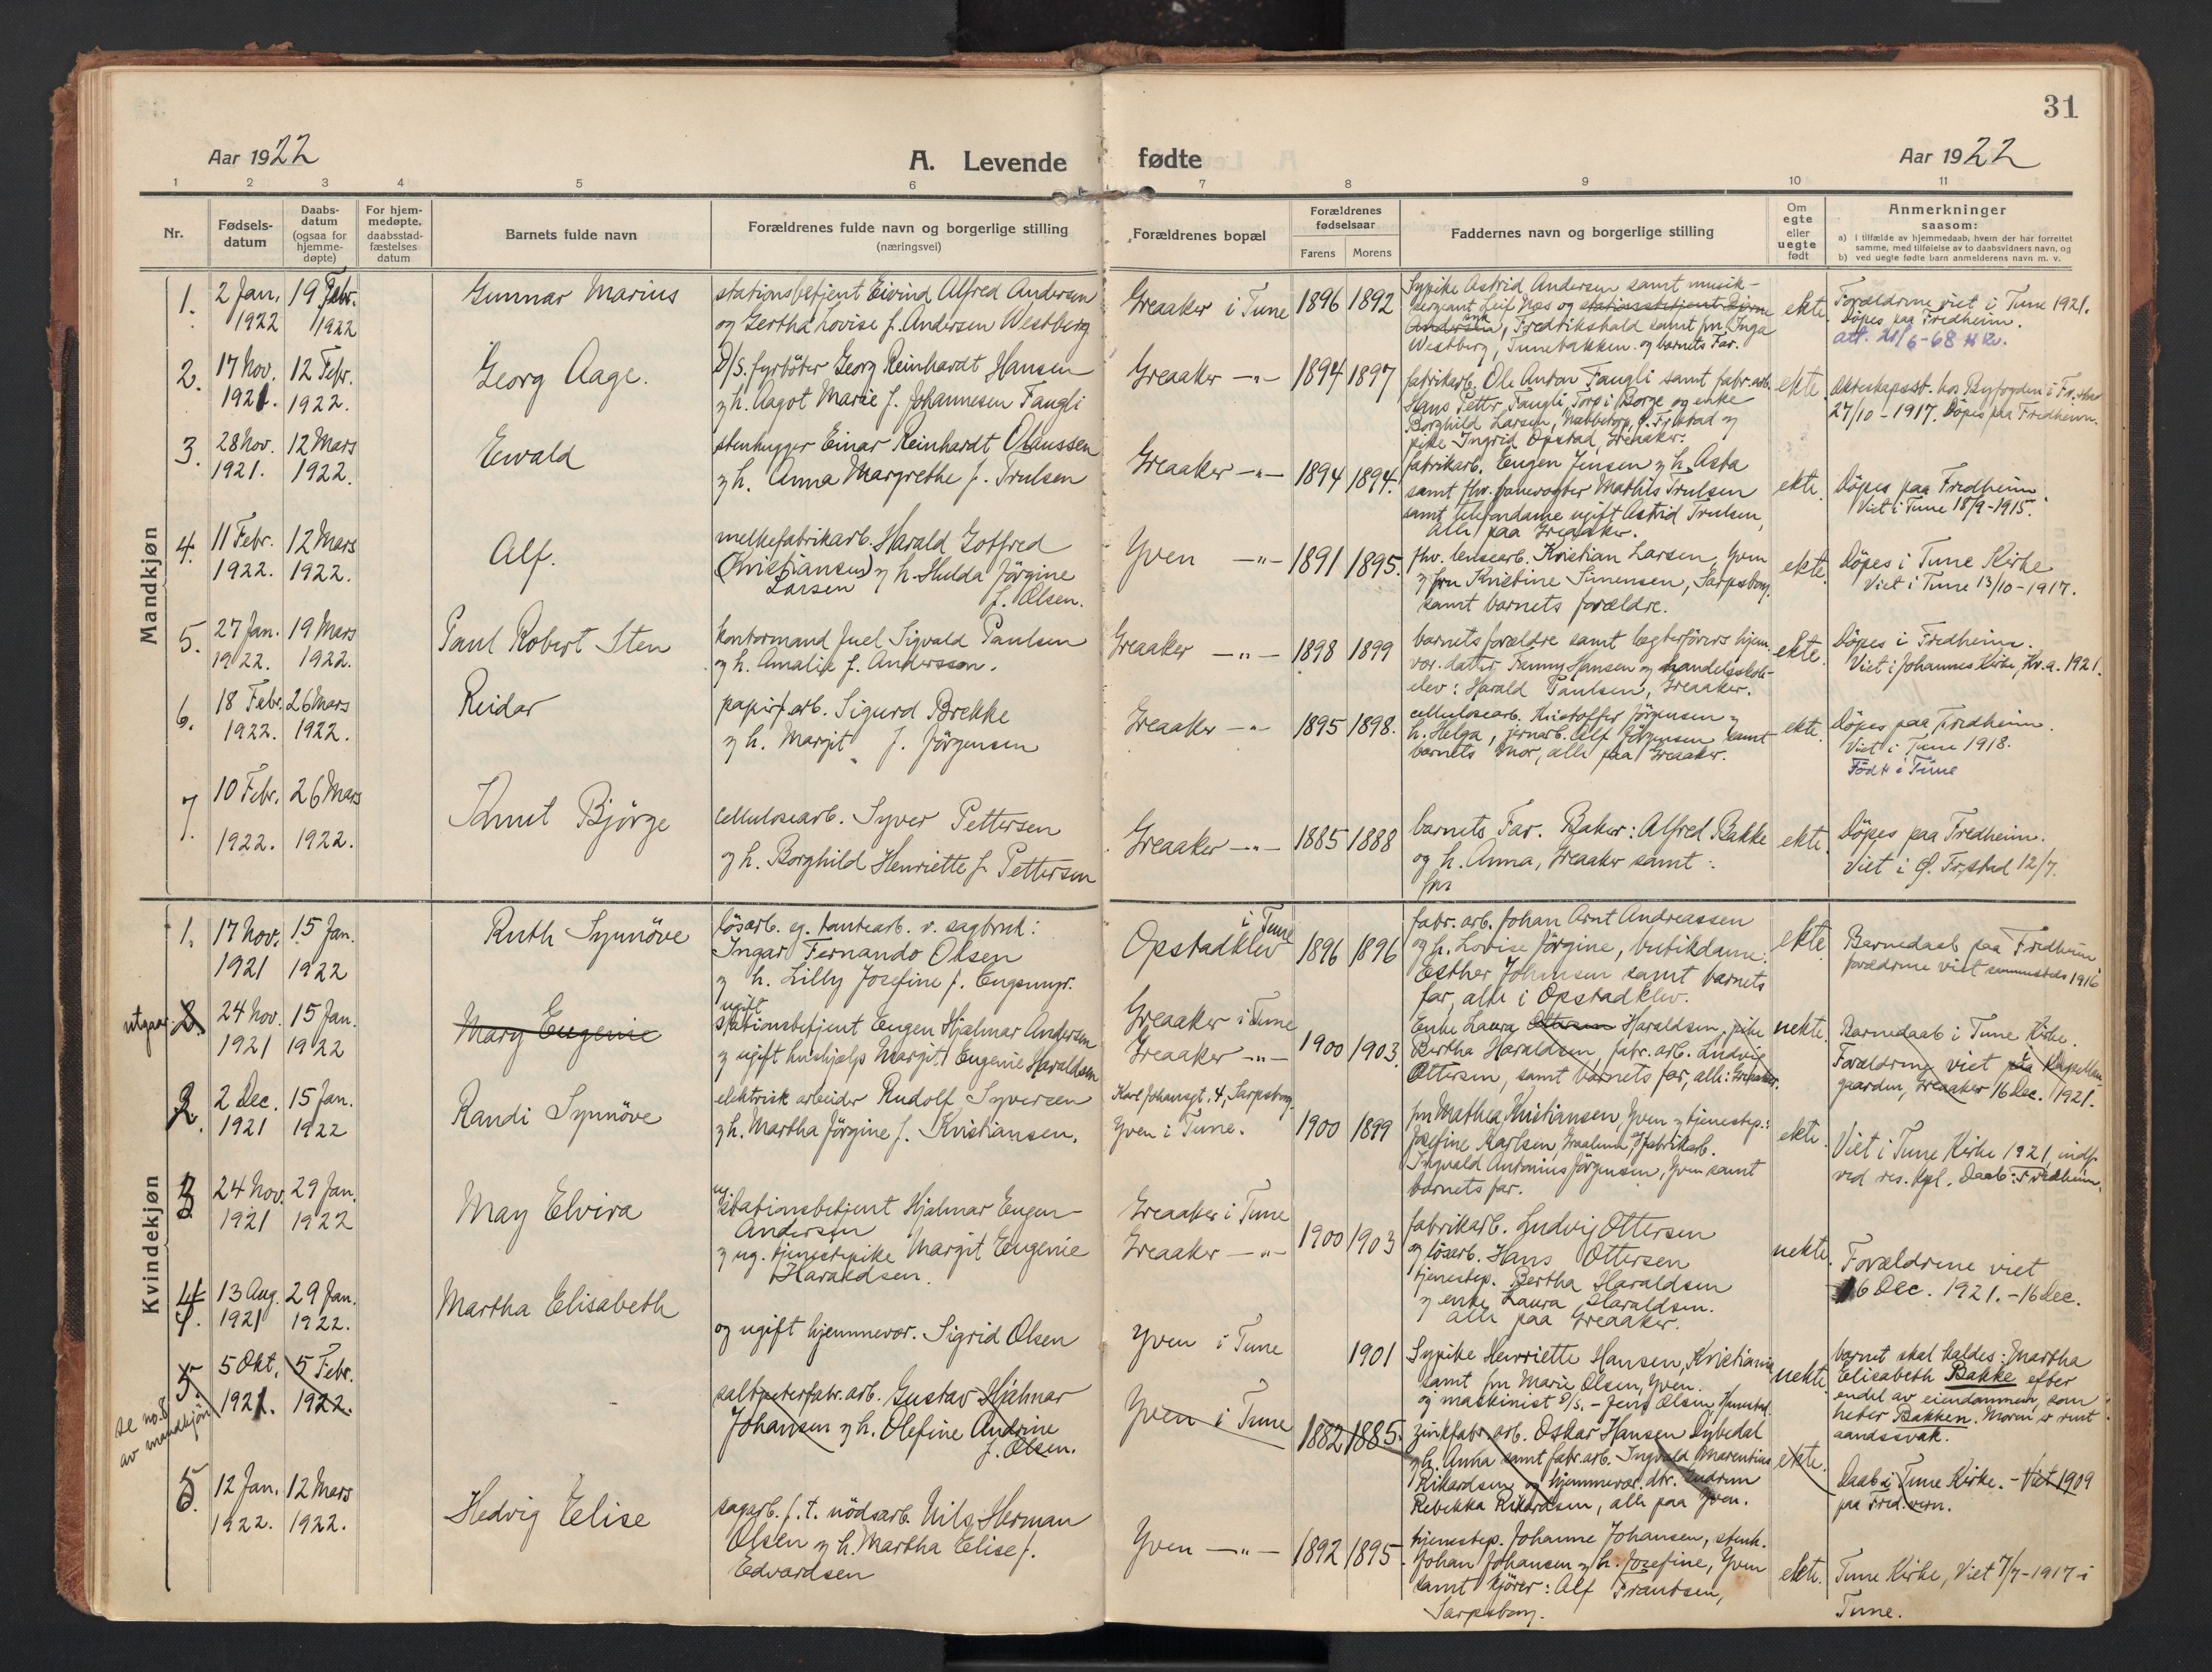 31
Aar 1922
A. Levende fødte
Aar 1922
1 2 3 4 5 6 7 8 9 10 11
Nr.
Fødsels-
datum
Daabs-
datum
(ogsaa for
hjemme-
døpte)
For hjem-
medøpte,
daabsstad-
fæstelses
datum
Barnets fulde navn
Forældrenes fulde navn og borgerlige stilling
(næringsvei)
Forældrenes bopæl
Forældrenes
fødselsaar
Farens Morens
Faddernes navn og borgerlige stilling
Om
egte
eller
uegte
født
Anmerkninger
saasom:
a) i tilfælde av hjemmedaab, hvem der har forrettet
samme, med tilføielse av to daabsvidners navn, og
b) ved uegte fødte barn anmelderens navn m. v.
Mandkjøn
1.
2 Jan.
1922
19 Febr.
1922
Gunnar Marius
stationsbetjent Eivind Alfred Andersen
og Gertha Lovise f. Andersen Westberg
Greaaker i Tune
1896 1892
Sypike Astrid Andersen samt musik-
sergeant Leif Næs og stationsbetjent Bjarne
Andersen, Fredrikshald samt fru Inga
Westberg, Tunebakken og barnets Far.
ekte.
Forældrene viet i Tune 1921.
Döpes paa Fredheim.
att. 21/6-68
2.
17 Nov.
1921.
12 Febr.
1922.
Georg Aage.
D/S. fyrböter Georg Reinhardt Hansen
og h. Aagot Marie f. Johannesen Faugli
Greaaker —"—
1894 1897
fabrikarb. Ole Anton Faugli samt fabr. arb.
Hans Petter Faugli, Torp i Borge og enke
Borghild Larsen, Nabbetorp, Ö. Fr.stad og
pike Ingrid Opstad, Greaaker.
ekte.
ekteskapsst. hos Byfogden i Fr.stad
27/10-1917. Döpes paa Fredheim.
3.
28 Nov.
1921.
12 Mars
1922.
Ewald
stenhugger Einar Reinhardt Olaussen
og h. Anna Margrethe f. Trulsen
Greaaker —"—
1894 1894.
fabrikarb. Eugen Jensen og h. Asta
samt fhv. banevogter Mathis Trulsen
samt telefondame ugift Astrid Trulsen,
alle paa Greaaker.
ekte.
Döpes paa Fredheim.
Viet i Tune 18/9-1915.
4.
11 Febr.
1922.
12 Mars
1922.
Alf.
melkefabrikarb. Harald Gotfred
(Kristiansen) og h. Hulda Jörgine
Larsen f. Olsen.
Yven —"—
1891 1895.
fhv. lensearb. Kristian Larsen, Yven
og fru Kristine Simensen, Sarpsborg,
samt barnets forældre.
ekte.
Döpes i Tune Kirke
Viet i Tune 13/10-1917.
5.
27 Jan.
1922.
19 Mars
1922.
Paul Robert Sten
kontormand Juel Sigvald Paulsen
og h. Amalie f. Andersson.
Greaaker —"—
1898 1899
barnets forældre samt lægterförers hjem.
vær. datter Fanny Hansen og handelsskole-
elev: Harald Paulsen, Greaaker.
ekte.
Döpes i Fredheim.
Viet i Johannes Kirke, Kr.a. 1921.
6.
18 Febr.
1922.
26 Mars
1922.
Reidar
papirf. arb. Sigurd Brekke
og h. Margit f. Jörgensen
Greaaker —"—
1895 1898.
cellulosearb. Kristoffer Jörgensen og
h. Helga, jernarb. Alf Jörgensen samt
barnets Mor, alle paa Greaaker.
ekte.
Döpes paa Fredheim.
Viet i Tune 1918.
Født i Tune
7.
10 Febr.
1922.
26 Mars
1922.
Knut Bjørge
cellulosearb. Syver Pettersen
og h. Borghild Henriette f. Pettersen
Greaaker —"—
1885 1888
barnets Far. Baker: Alfred Bakke
og h. Anna, Greaaker samt:
fru
ekte.
Döpes paa Fredheim.
Viet i Ö. Fr.stad 12/7.
Kvindekjøn
1.
17 Nov.
1921
15 Jan.
1922
Ruth Synnöve
lösarb. eg. tomtearb. v. sagbruk:
Ingar Fernando Olsen
og h. Lilly Josefine f. Engsmyr.
i Tune
Opstadklev
1896 1896
fabr. arb. Johan Arnt Andreassen
og h. Lovise Jörgine, butikdame
Esther Johansen samt barnets
far, alle i Opstadklev.
ekte
Barnedaab paa Fredheim
forældrene viet sammesteds 1916
utgaar
2.
24 Nov.
1921
15 Jan.
1922
Mary Eugenie
ugift
stationsbetjent Eugen Hjalmar Andersen
og ugift hushjelp Margit Eugenie Haraldsen
Greaaker i Tune
Greaaker —"—
1900 1903
Enke Laura Ottersen Haraldsen, pike
Bertha Haraldsen, fabr. arb. Ludvig
Ottersen, samt barnets far, alle: Greaaker.
uekte.
Barnedaab i Tune Kirke.
Forældrene viet paa Kapellan-
gaarden, Greaaker 16 Dec. 1921.
2.
2 Dec.
1921
15 Jan.
1922
Randi Synnöve
elektrisk arbeider Rudolf Syversen
og h. Martha Jörgine f. Kristiansen.
Karl Johansgt. 4, Sarpsborg.
Yven i Tune.
1900 1899
fru Mathea Kristiansen, Yven og tjenestep.:
Josefine Karlsen, Graalum, fabrikarb.
Ingvald Antonius Jörgensen, Yven samt
barnets far.
ekte.
Viet i Tune Kirke 1921, indf.
ved res. kpl. Daab: Fredheim.
3
24 Nov.
1921
29 Jan.
1922
May Elvira
ug. stationsbetjent Hjalmar Eugen
Andersen
og ug. tjenestepike Margit Eugenie
Haraldsen.
Greaaker i Tune
Greaaker —"—
1900 1903
fabrikarb. Ludvig Ottersen
og lösarb. Hans Ottersen
tjenestep. Bertha Haraldsen
og enke Laura Haraldsen.
alle paa Greaaker.
uekte.
Forældrene viet
16 Dec. 1921. - 16 Dec.
4.
13 Aug.
1921
29 Jan.
1922.
Martha Elisabeth
og ugift hjemmevær. Sigrid Olsen
Yven i Tune
1901
Sypike Henriette Hansen, Kristiania
samt fru Marie Olsen, Yven.
og maskinist D/S. - Jens Olsen,
uekte.
barnet skal kaldes: Martha
Elisabeth Bakke efter
endel av eiendommen, som
heter Bakken. Moren er
aandssvak.
se no. 8
av mandkjön
5.
5 Okt.
1921.
5 Febr.
1922.
saltpeterfabr. arb. Gustav Hjalmar
Johansen og h. Olefine Andrine
f. Olsen.
Yven i Tune
1882 1885.
zinkfabr. arb. Oskar Hansen Dybedal
og h. Anna samt fabr. arb. Ingvald Marentius
Rikardsen og hjemmevær. dtr. Gudrun
Rebekka Rikardsen, alle paa Yven.
ekte.
Daab i Tune Kirke. - Viet 1909
paa
5.
12 Jan.
1922.
12 Mars
1922.
Hedvig Elise
sagarb. f. t. nödsarb. Nils Herman
Olsen og h. Martha Elise f.
Edvardsen
Yven —"—
1892 1895.
tjenestep. Johanne Johansen, stenh.
Johan Johansen og h. Josefine, Yven
samt kjörer: Alf Frantsen,
Sarpsborg.
ekte.
Tune Kirke, Viet 7/7-1917 i
Tune.